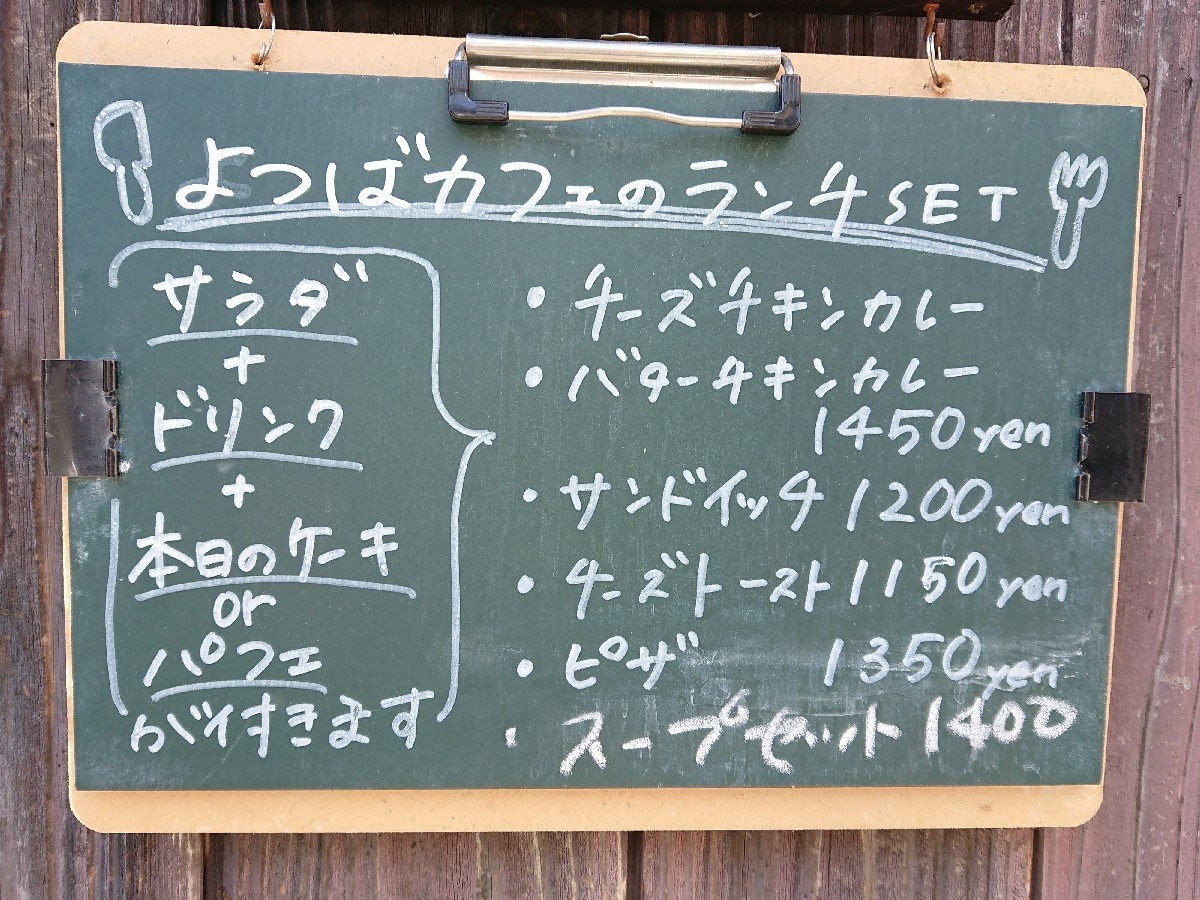 よつばカフェのランチSET
サラダ
+
ドリンク
+
本日のケーキ
or
パフェ
が付きます
・チーズチキンカレー
・バターチキンカレー
1450yen
・サンドイッチ 1200yen
・チーズトースト 1150yen
・ピザ 1350yen
・スープセット 1400